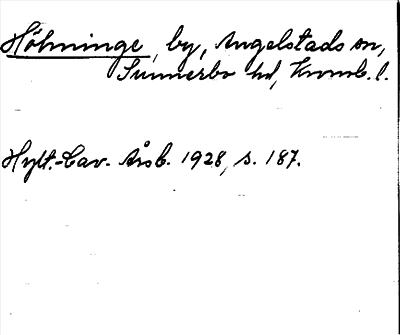 Höhninge, by, Angelstads sn,
Sunnerbo hd, Kronob. l.
Hylt.-Cav. Årsb. 1928, s. 187.